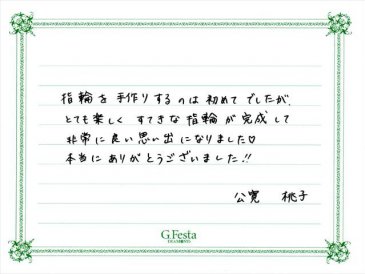 指輪を手作りするのは初めてでしたが、
とても楽しくすてきな指輪が完成して
非常に良い思い出になりました♡
本当にありがとうございました!!
公寛 桃子
G.Festa
DIAMONDS